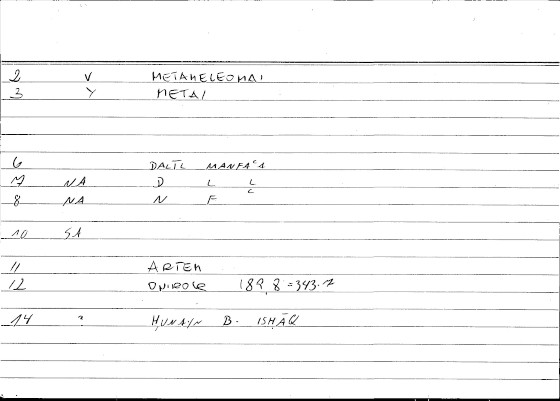 2 V METAMELEOMAI
3 Y METAI
6 DALĪL MANFAʿA
7 NA D L L
8 NA N F ʿ
10 SA
11 ARTEM
12 ONIROCR 189,8 = 343.7
14 ? ḤUNAYN B. ISḤĀQ